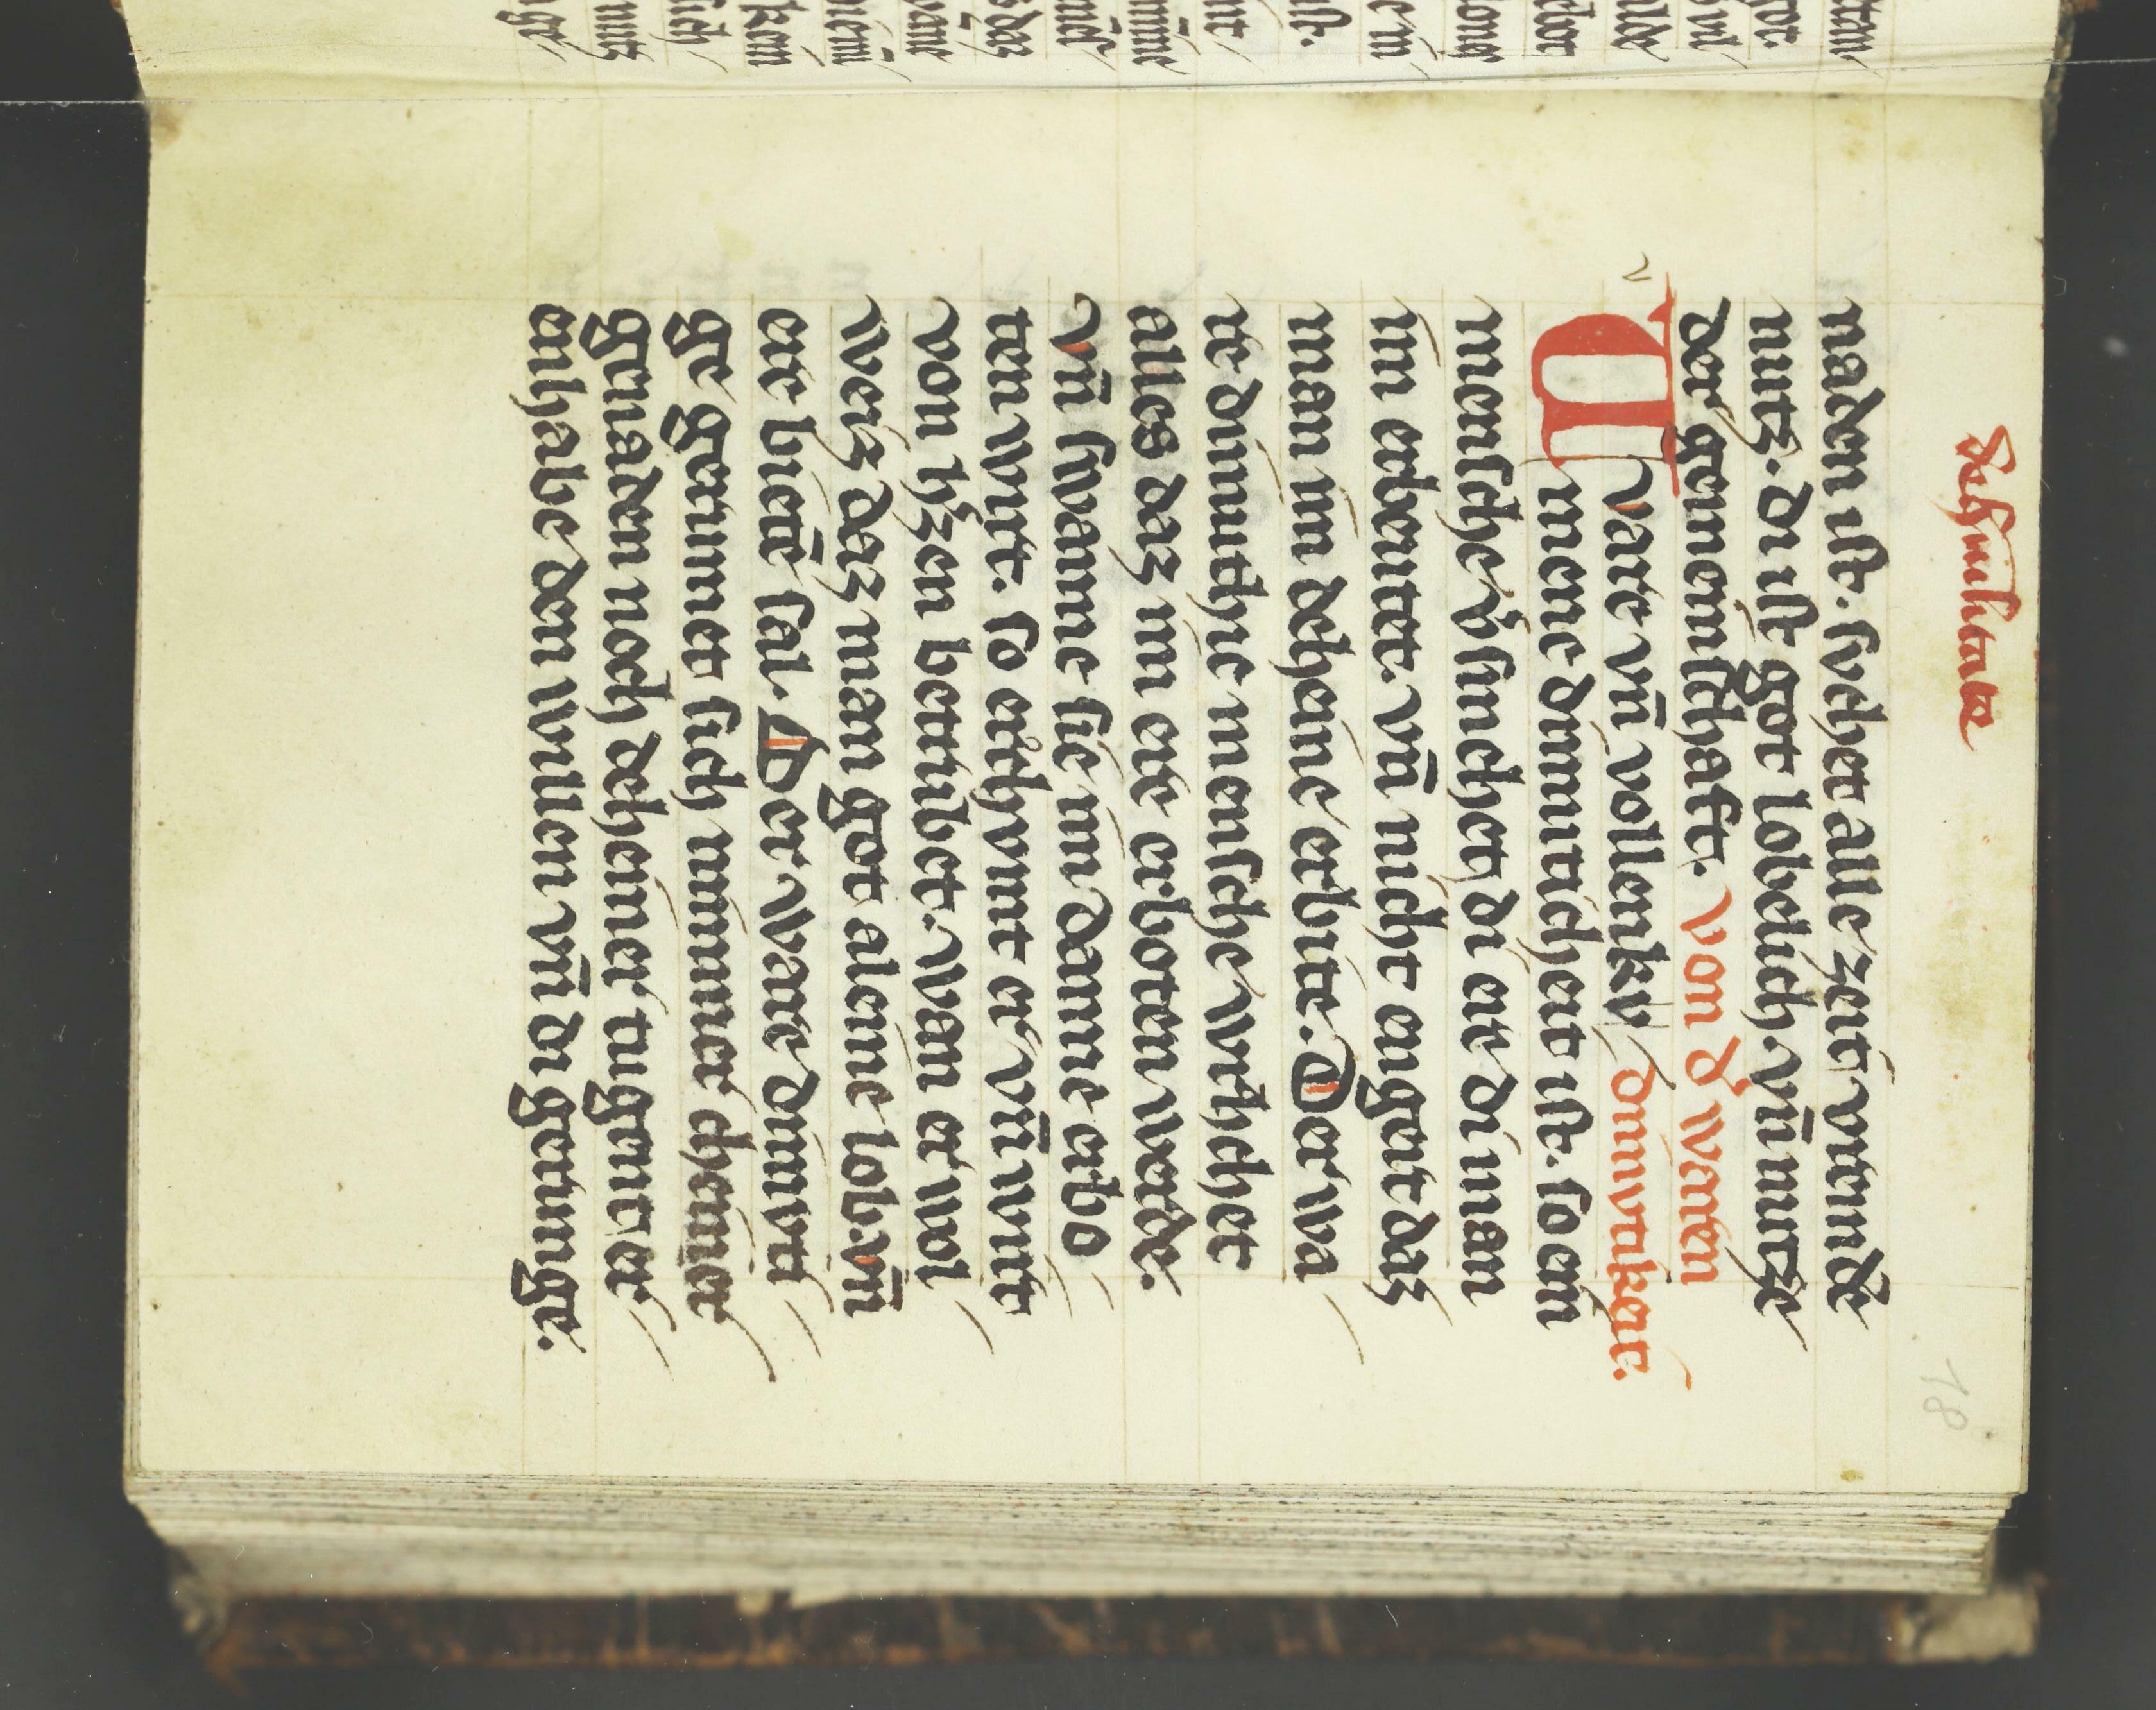 de humilitate
18
naden ist. suchet alle zeit vremdē
nutz. di ist got lobelich. vn̄ nutze
der gemeinschaft. von d̕ waren
Ware vn̄ vollenkv/ dimvtikeit.
mene dimuticheit ist. so ein
mensche v̕smehet di ere di man
im erbeutet. vn̄ nicht engert daz
man im deheine erbite. Der wa
re dimuthie mensche vvrhchet
alles daz im ere erboten werde.
vn̄ swanne sie im danne erbo
ten wirt. so erchvmt er vn̄ wirt
von h̕zen betrubet. wan er wol
weiz daz man got aleine lob. vn̄
ere bietē sal. Der ware dimvti
ge gerumet sich nimmer cheiner
genaden noch deheiner tugent er
enhabe den willen vn̄ di gerunge.